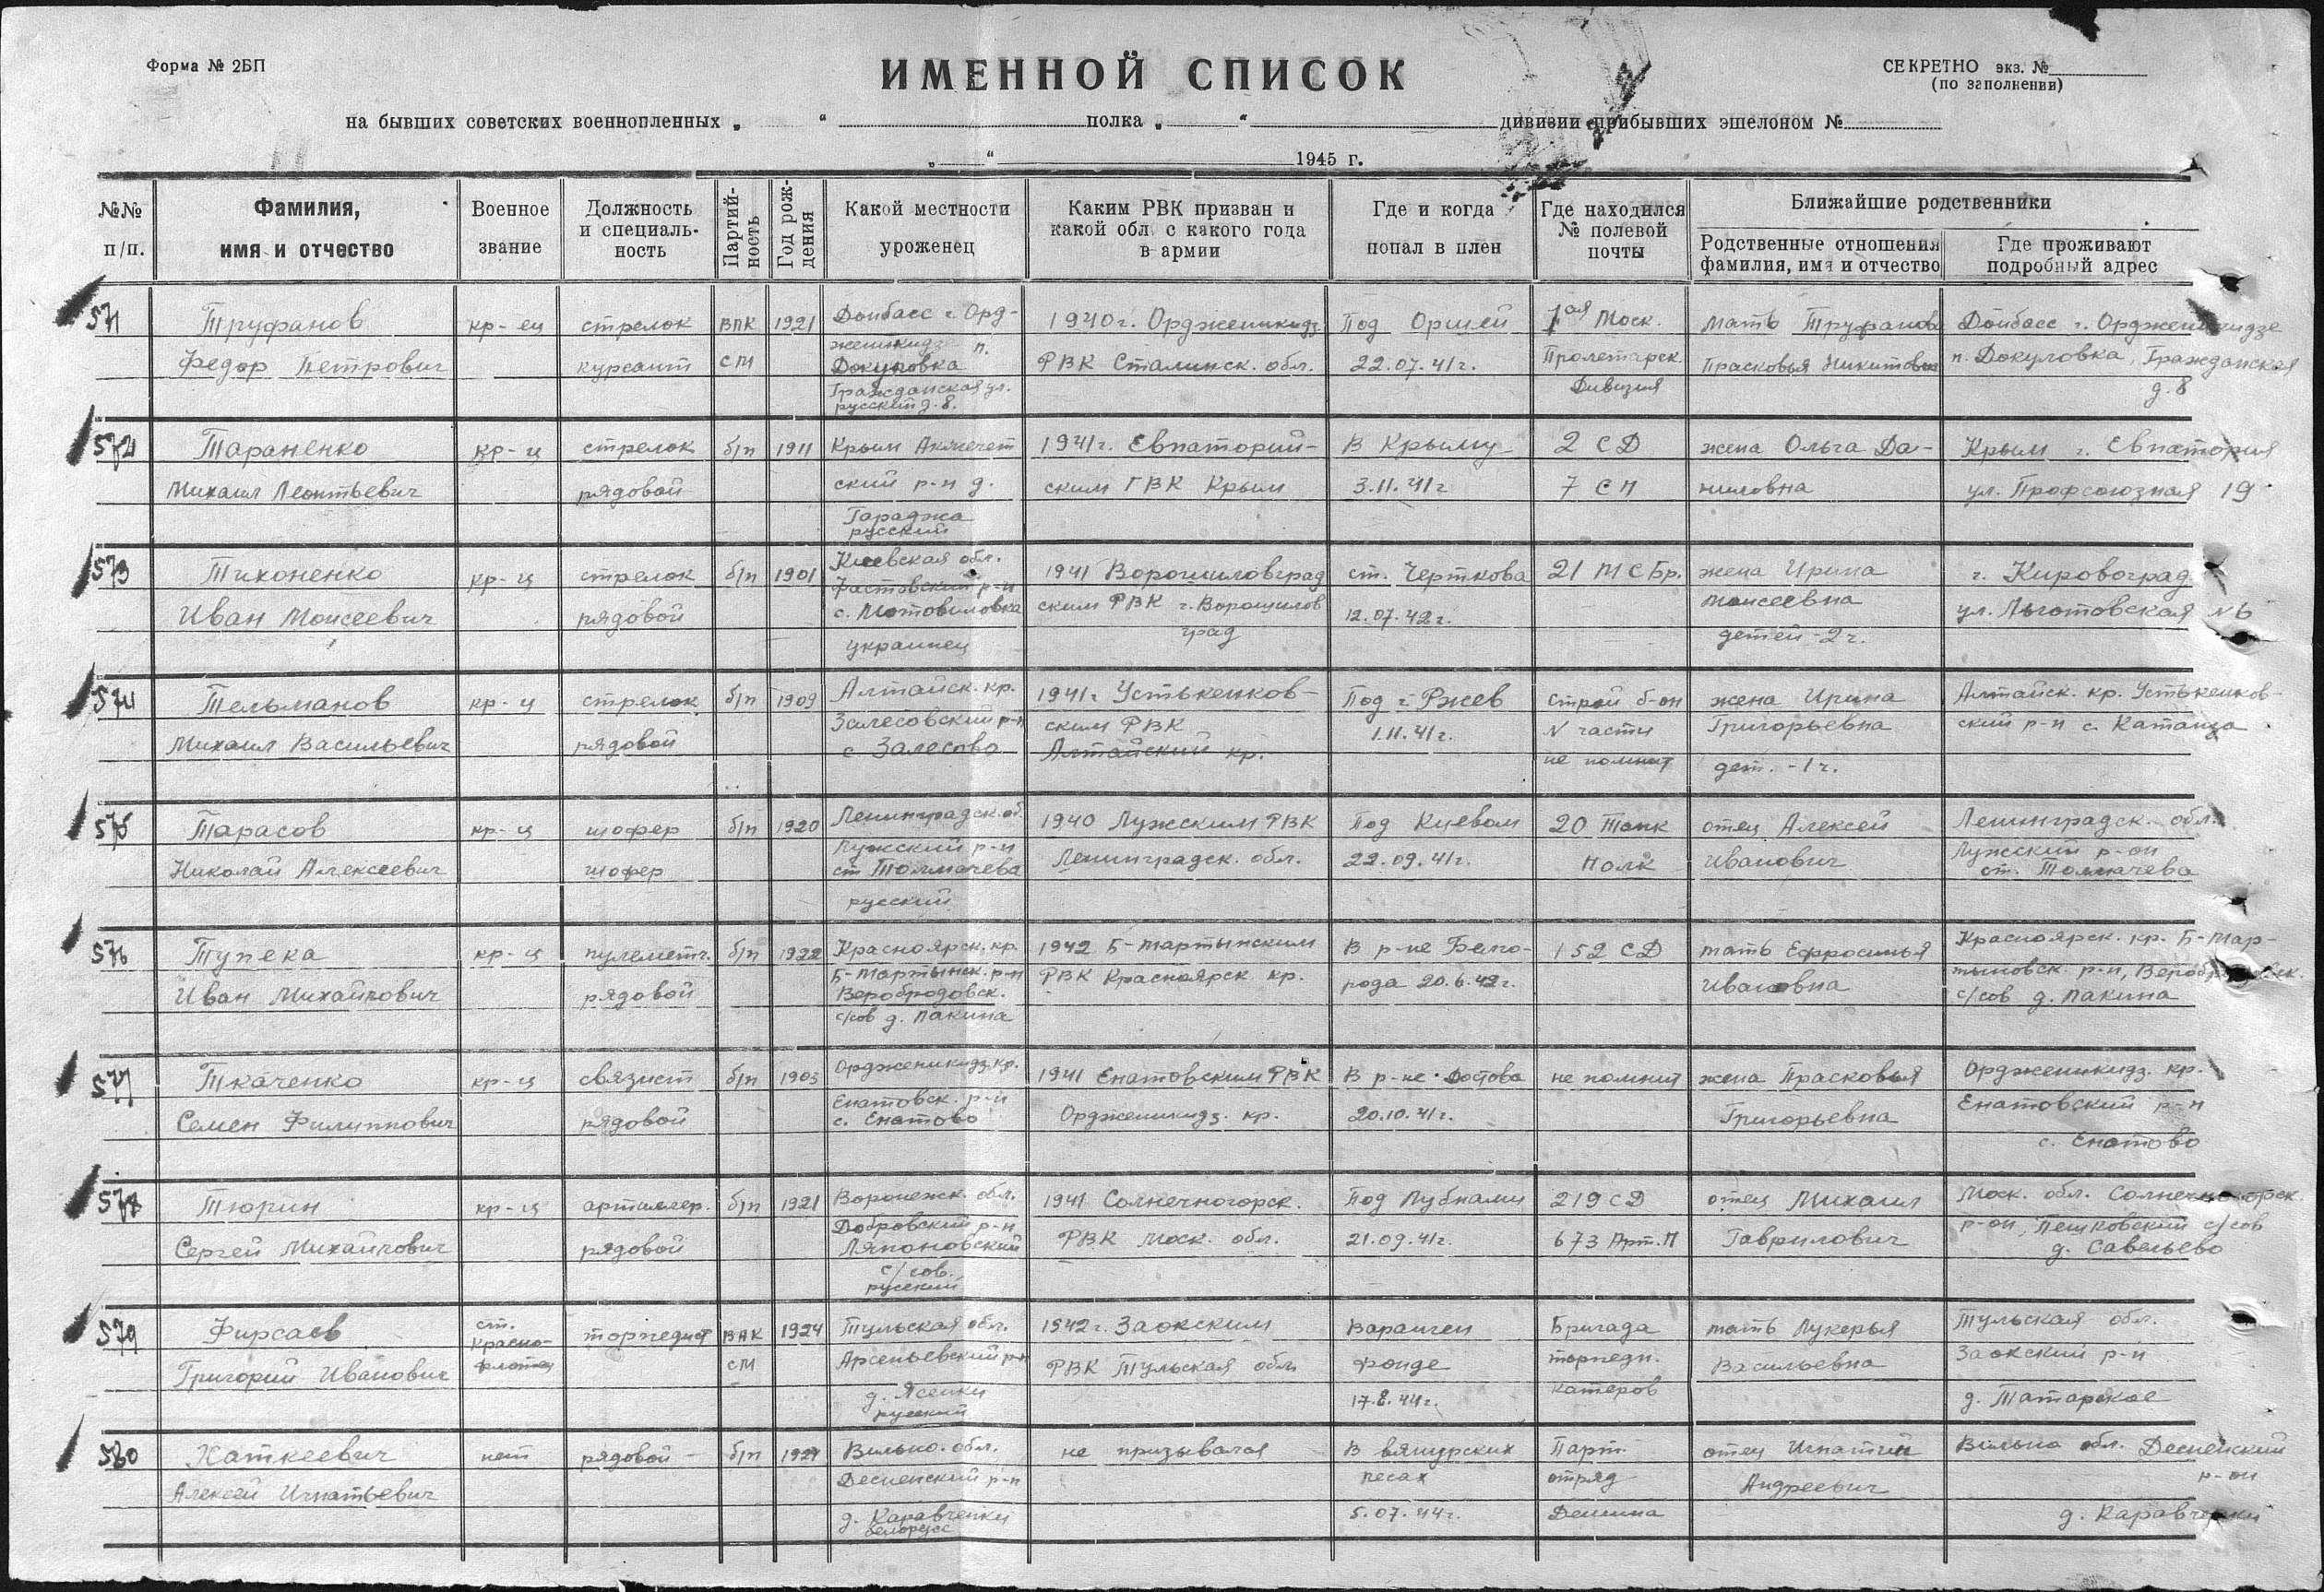 Форма № 2БП
ИМЕННОЙ СПИСОК
СЕКРЕТНО экз. №
(по заполнении)
на бывших советских военнопленных „ “ полка „ “ дивизии прибывших эшелоном №
„ “ 1945 г.
№№ п/п.
Фамилия, имя и отчество
Военное звание
Должность и специаль-ность
Партий-ность
Год рож-дения
Какой местности уроженец
Каким РВК призван и какой обл. с какого года в армии
Где и когда попал в плен
Где находился № полевой почты
Ближайшие родственники
Родственные отношения фамилия, имя и отчество
Где проживают подробный адрес
571 Труфанов кр-ец стрелок ВЛК 1921 Донбасс г. Орд- 1940г. Орджоникидз Под Оршей 1ая Моск. мать Труфанова Донбасс г. Орджоникидзе
жникидзе п.
Федор Петрович курсант СМ Докуловка РВК Сталинск. обл. 22.07.41г. Пролетарск. Прасковья Никитовна п. Докуловка, Гражданская
Гражданская ул. Дивизия д. 8
русский д. 8.
572 Тараненко кр-ц стрелок б/п 1911 Крым Акмечет 1941г. Евпаторий- В Крыму 2 СД жена Ольга Да- Крым г. Евпатория
Михаил Леонтьевич рядовой ский р-н д. ским ГВК Крым 3.11.41г 7 СП ниловна ул. Профсоюзная 19
Тараджа
русский
573 Тихоненко кр-ц стрелок б/п 1901 Киевская обл. 1941 Ворошиловград ст. Черткова 21 МСБр. жена Ирина г. Кировоград
Фастовский р-н
Иван Моисеевич рядовой с. Мотовиловка ским РВК г. Ворошилов 12.07.42г. Моисеевна ул. Льготовская №6
град
украинец детей -2ч.
574 Тельманов кр-ц стрелок б/п 1909 Алтайск. кр. 1941г Устькенков- Под г. Ржев строй б-он жена Ирина Алтайск. кр. Устькенков-
Залесовский р-н ским РВК 1.11.41г. N части Григорьевна ский р-н с.
Михаил Васильевич рядовой с Залесово Алтайский кр. не помнит дет. -1ч.
575 Тарасов кр-ц шофер б/п 1920 Ленинградск. об. 1940 Лужским РВК Под Киевом 20 Танк отец Алексей Ленинградск. обл.
Лужский р-н Лужский р-он
Николай Алексеевич шофер ст Толмачева Ленинградск. обл. 22.09.41г. Полк Иванович ст. Толмачева
русский
576 Тупека кр-ц пулеметч. б/п 1922 Красноярск. кр. 1942 Б-Мартынским В р-не Бело- 152 СД мать Ефросинья Красноярск. кр. Б-Мар-
Б-Мартынск. р-н
Иван Михайлович рядовой Веробродовск. РВК Красноярск кр. рода 20.6.42г. Ивановна тыновск. р-н,
с/сов д. Пакина с/сов д. Пакина
577 Ткаченко кр-ц связист б/п 1903 Орджоникидз. кр. 1941 Енатовским РВК В р-не Ростова не помнит жена Прасковья Орджоникидз. кр.
Енатовск. р-н
Семен Филиппович рядовой с. Енатово Орджоникидз. кр. 20.10.41г. Григорьевна Енатовский р-н
с. Енатово
578 Тюрин кр-ц артиллер. б/п 1921 Воронежск. обл. 1941 Солнечногорск. Под Лубнами 219 СД отец Михаил Моск. обл. Солнечногорск
Добровский р-н
Сергей Михайлович рядовой Ляпоновский РВК Моск. обл. 21.09.41г. 673 Арт.П Гаврилович р-он, Пешковский с/сов
с/сов. д. Савельево
русский
579 Фирсаев ст. красно-флотец торпедист ВЛК 1924 Тульская обл. 1942г. Заокским Варангеи Бригада мать Лукерья Тульская обл.
Григорий Иванович СМ Арсеньевский р-н РВК Тульская обл. Фонде торпедн. Васильевна Заокский р-н
д. Ясенки 17.8.44г. катеров д. Татарское
русский
580 Каткеевич нет рядовой б/п 1924 Вильно. обл. не призывался В вянурских Парт. отец Игнатий Вильна обл. Десненский
Алексей Игнатьевич Десненский р-н лесах отряд Андреевич р-он
д. Каравченки 5.07.44г. Демина д. Каравченки
белорусс